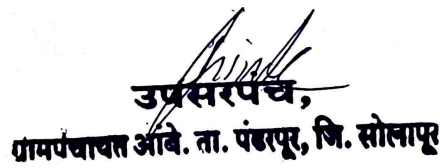 उपसरपंच,
ग्रामपंचायत आंबे. ता. पंढरपूर, जि. सोलापूर